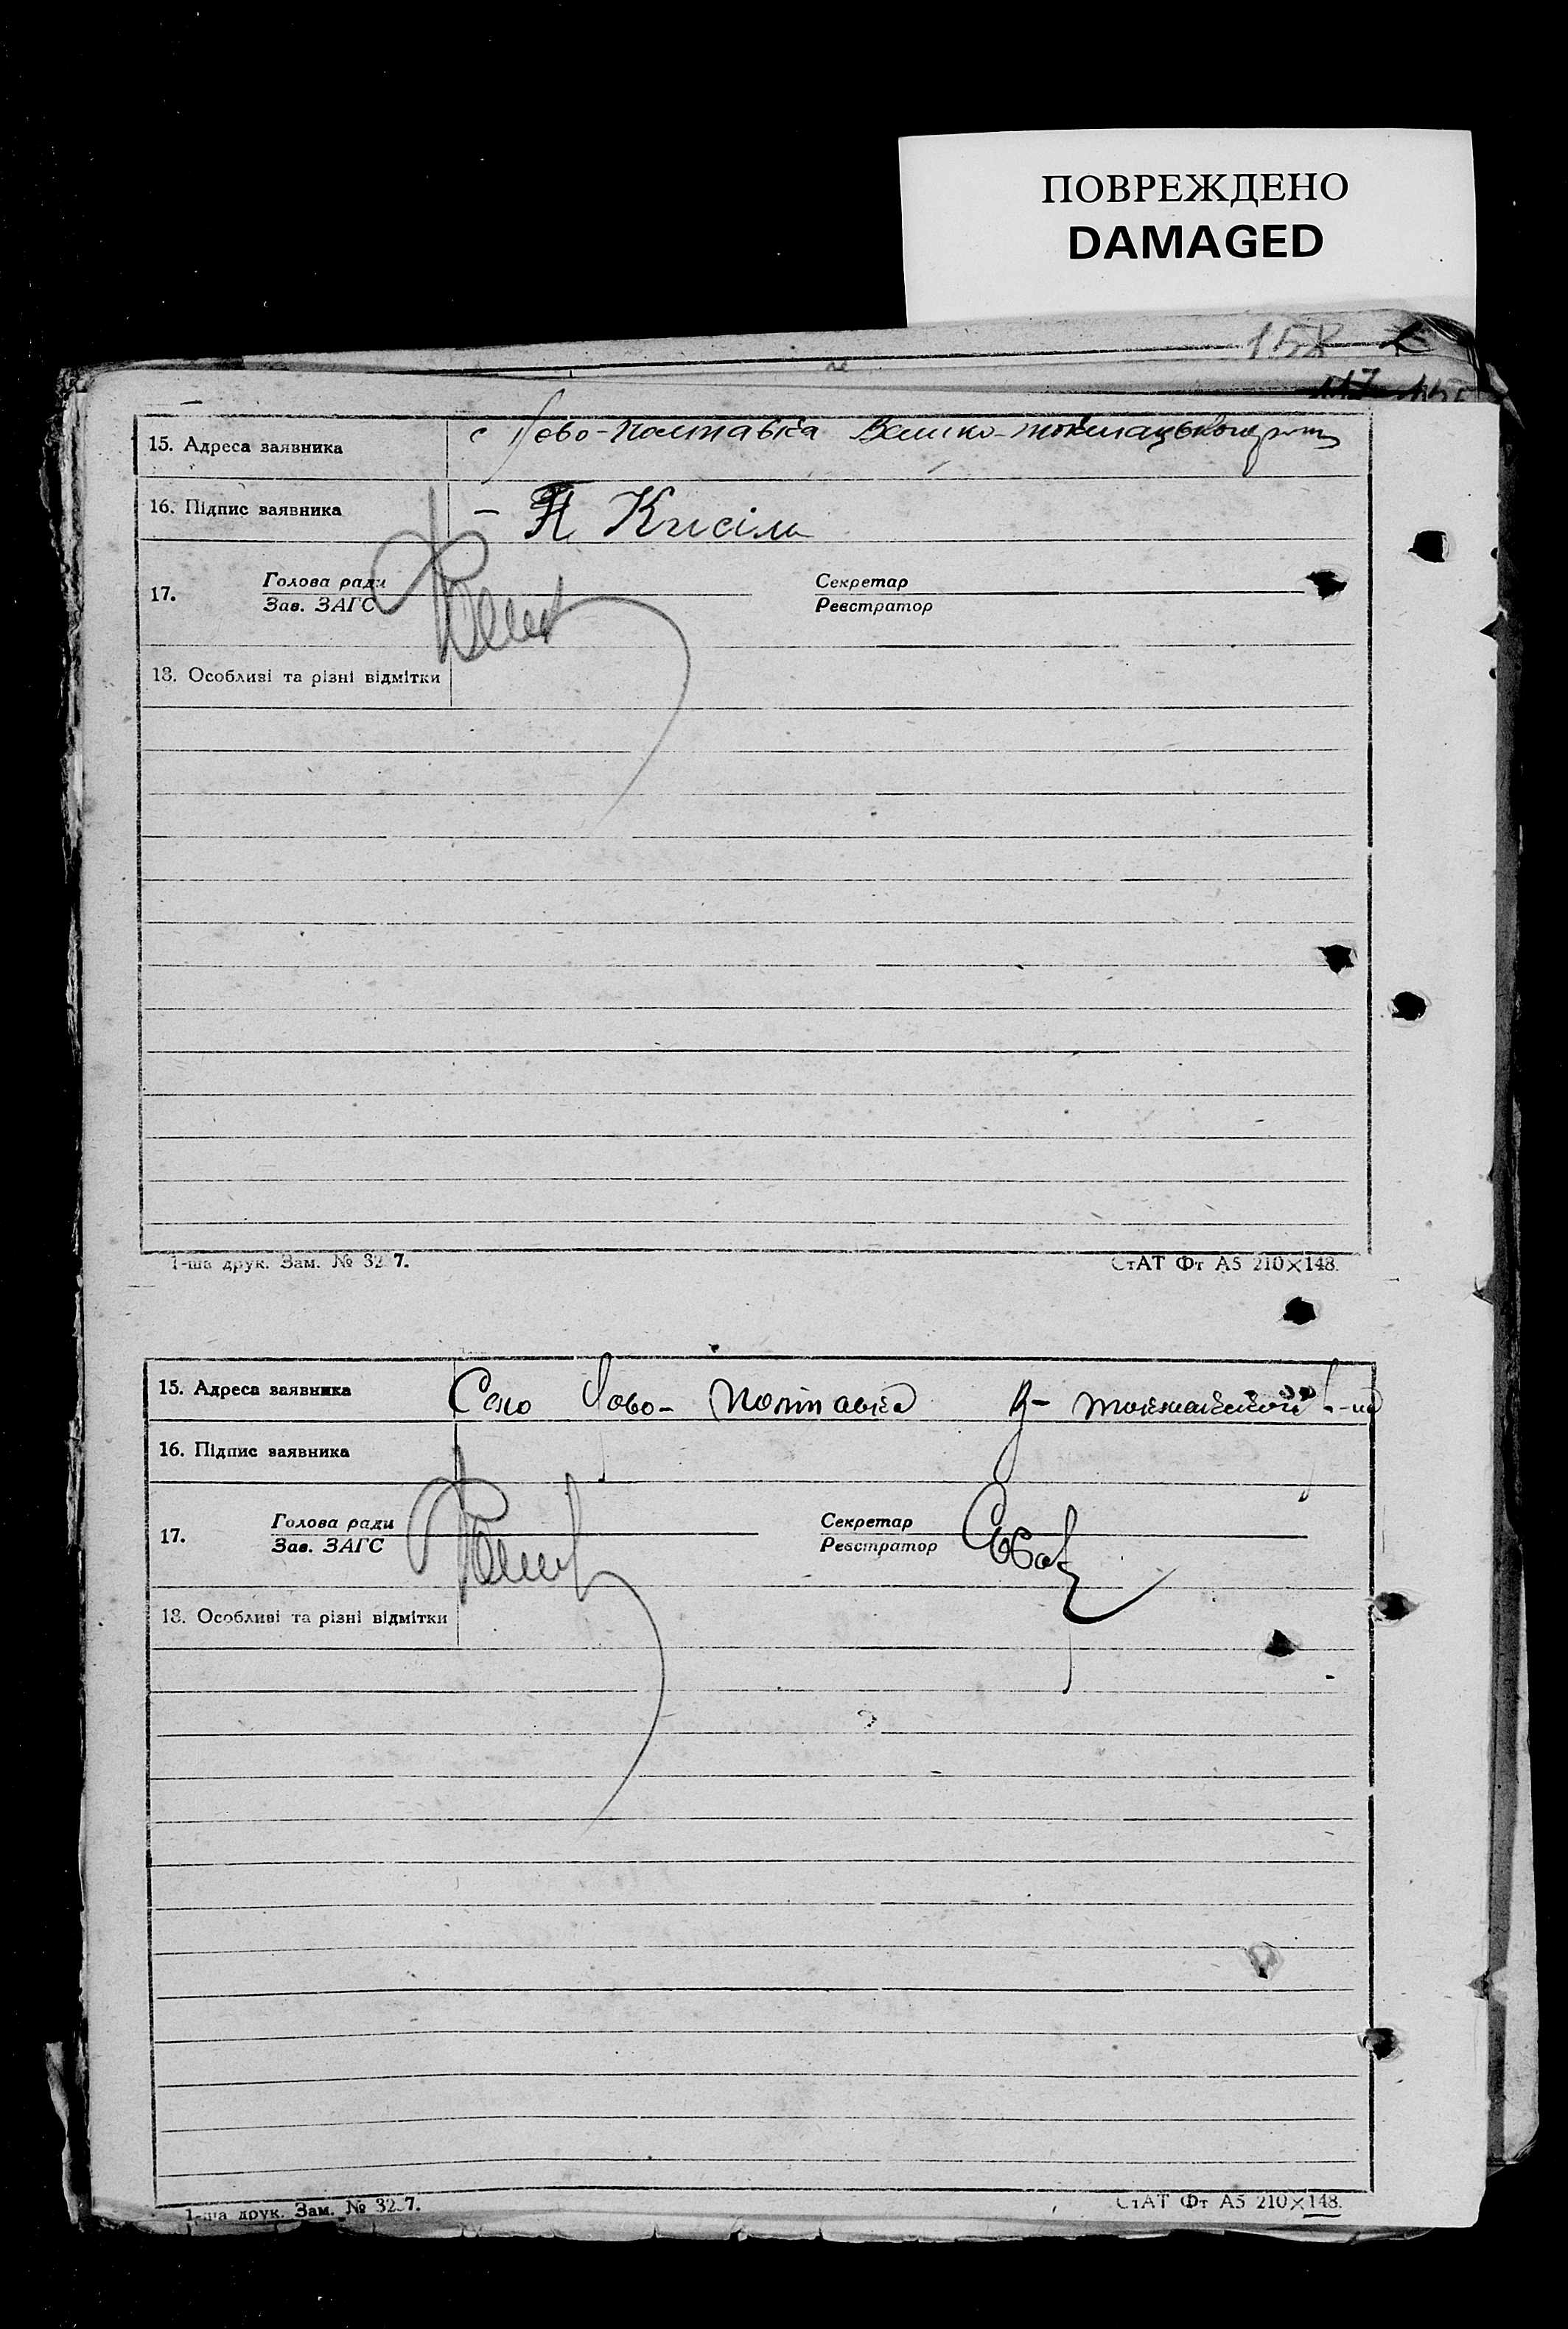 ПОВРЕЖДЕНО
DAMAGED
158
15. Адреса заявника с Ново-Полтавка Велико-токмацького
16. Підпис заявника – П Кисіль
17. Голова ради Секретар
Зав. ЗАГС Реєстратор
18. Особливі та різні відмітки
1-ша друк. Зам. № 32 7. СтАТ Фт А5 210×148.
15. Адреса заявника Село Ново- Полтавка В- токмакской р-на
16. Підпис заявника
17. Голова ради Секретар
Зав. ЗАГС Реєстратор
18. Особливі та різні відмітки
1-ша друк. Зам. № 32 7. СтАТ Фт А5 210×148.